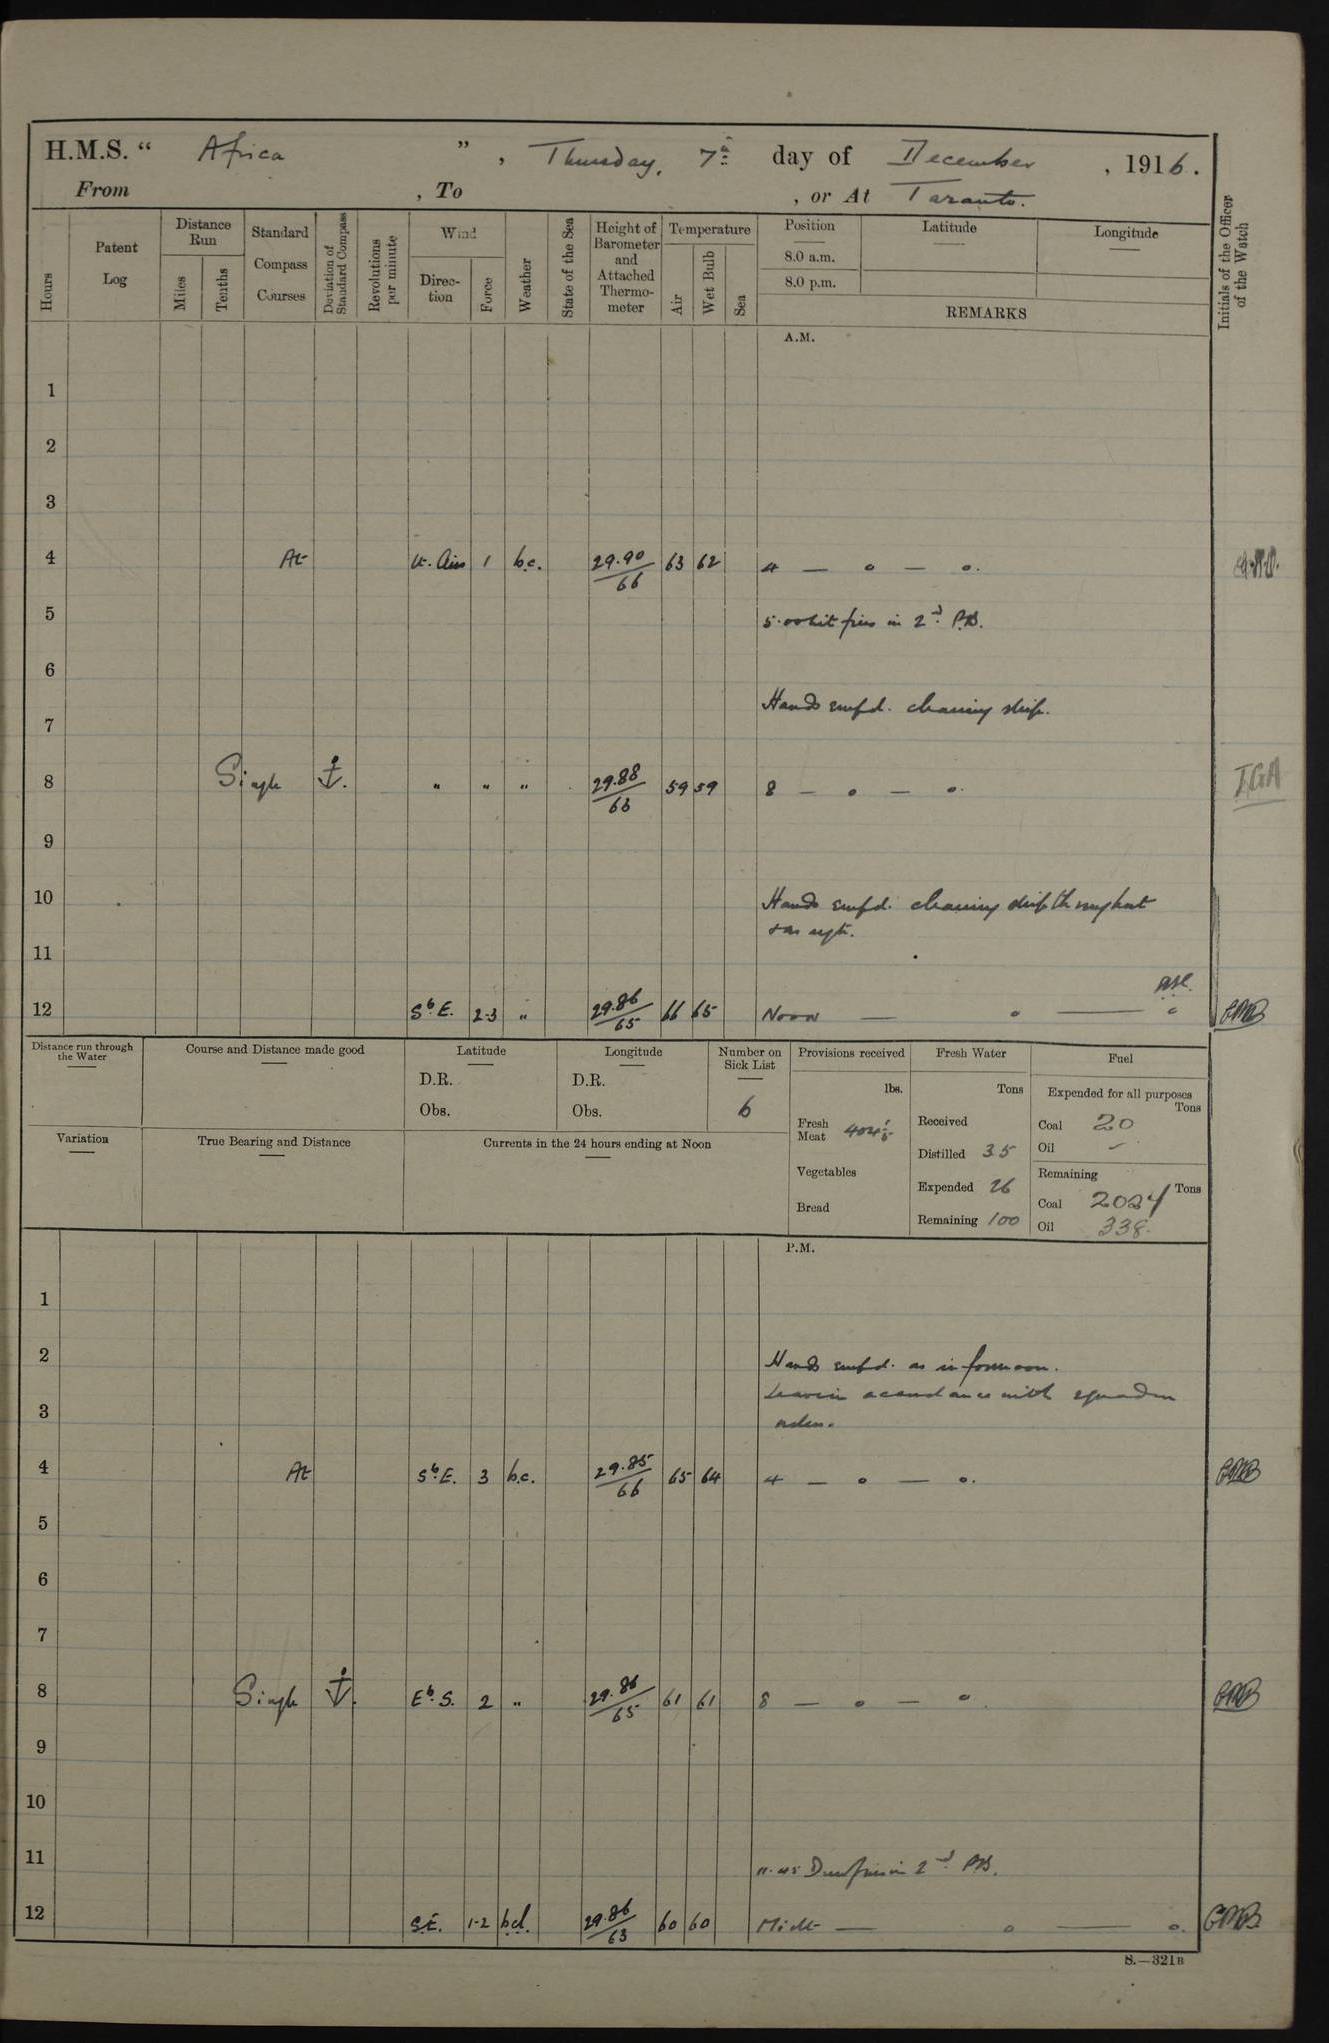 H.M.S. " Africa ", Thursday, 7th day of December, 1916.
From , To , or At Taranto.
Hours
Patent Log
Distance Run
Miles
Tenths
Standard Compass Courses
Deviation of Standard Compass
Revolutions per minute
Wind
Direc-tion
Force
Weather
State of the Sea
Height of Barometer and Attached Thermo-meter
Temperature
Air
Wet Bulb
Sea
Position
8.0 a.m.
8.0 p.m.
Latitude
Longitude
REMARKS
Initials of the Officer of the Watch
A.M.
1
2
3
4 At Lt. Airs 1 b.c. 29.90/66 63 62 4 — o — o.
5 5.00 Lit fires in 2nd P.B.
6
Hands empd. cleaning ship.
7
8 Single ⚓. " " " 29.88/63 59 59 8 — o — o. IGA
9
10 Hands empd. cleaning ship throughout
11
12 SbE. 2-3 " 29.86/65 66 65 Noon — o — o GMB
Distance run through the Water
Course and Distance made good
Latitude
D.R.
Obs.
Longitude
D.R.
Obs.
Number on Sick List
6
Variation
True Bearing and Distance
Currents in the 24 hours ending at Noon
Provisions received
lbs.
Fresh Meat
Vegetables
Bread
Fresh Water
Tons
Received
Distilled 35
Expended 26
Remaining 100
Fuel
Expended for all purposes
Tons
Coal 20
Oil –
Remaining
Tons
Coal 2024
Oil 338.
P.M.
1
2 Hands empd. as in forenoon.
Leave in accordance with squadron
3 orders.
4 At SbE. 3 b.c. 29.85/66 65 64 4 — o — o. GMB
5
6
7
8 Single ⚓. EbS. 2 " 29.86/65 61 61 8 — o — o. GMB
9
10
11 11.45 Drew fires in 2nd P.B.
12 S.E. 1-2 bcd. 29.86/63 60 60 Midt — o — o. GMB
S.—321B